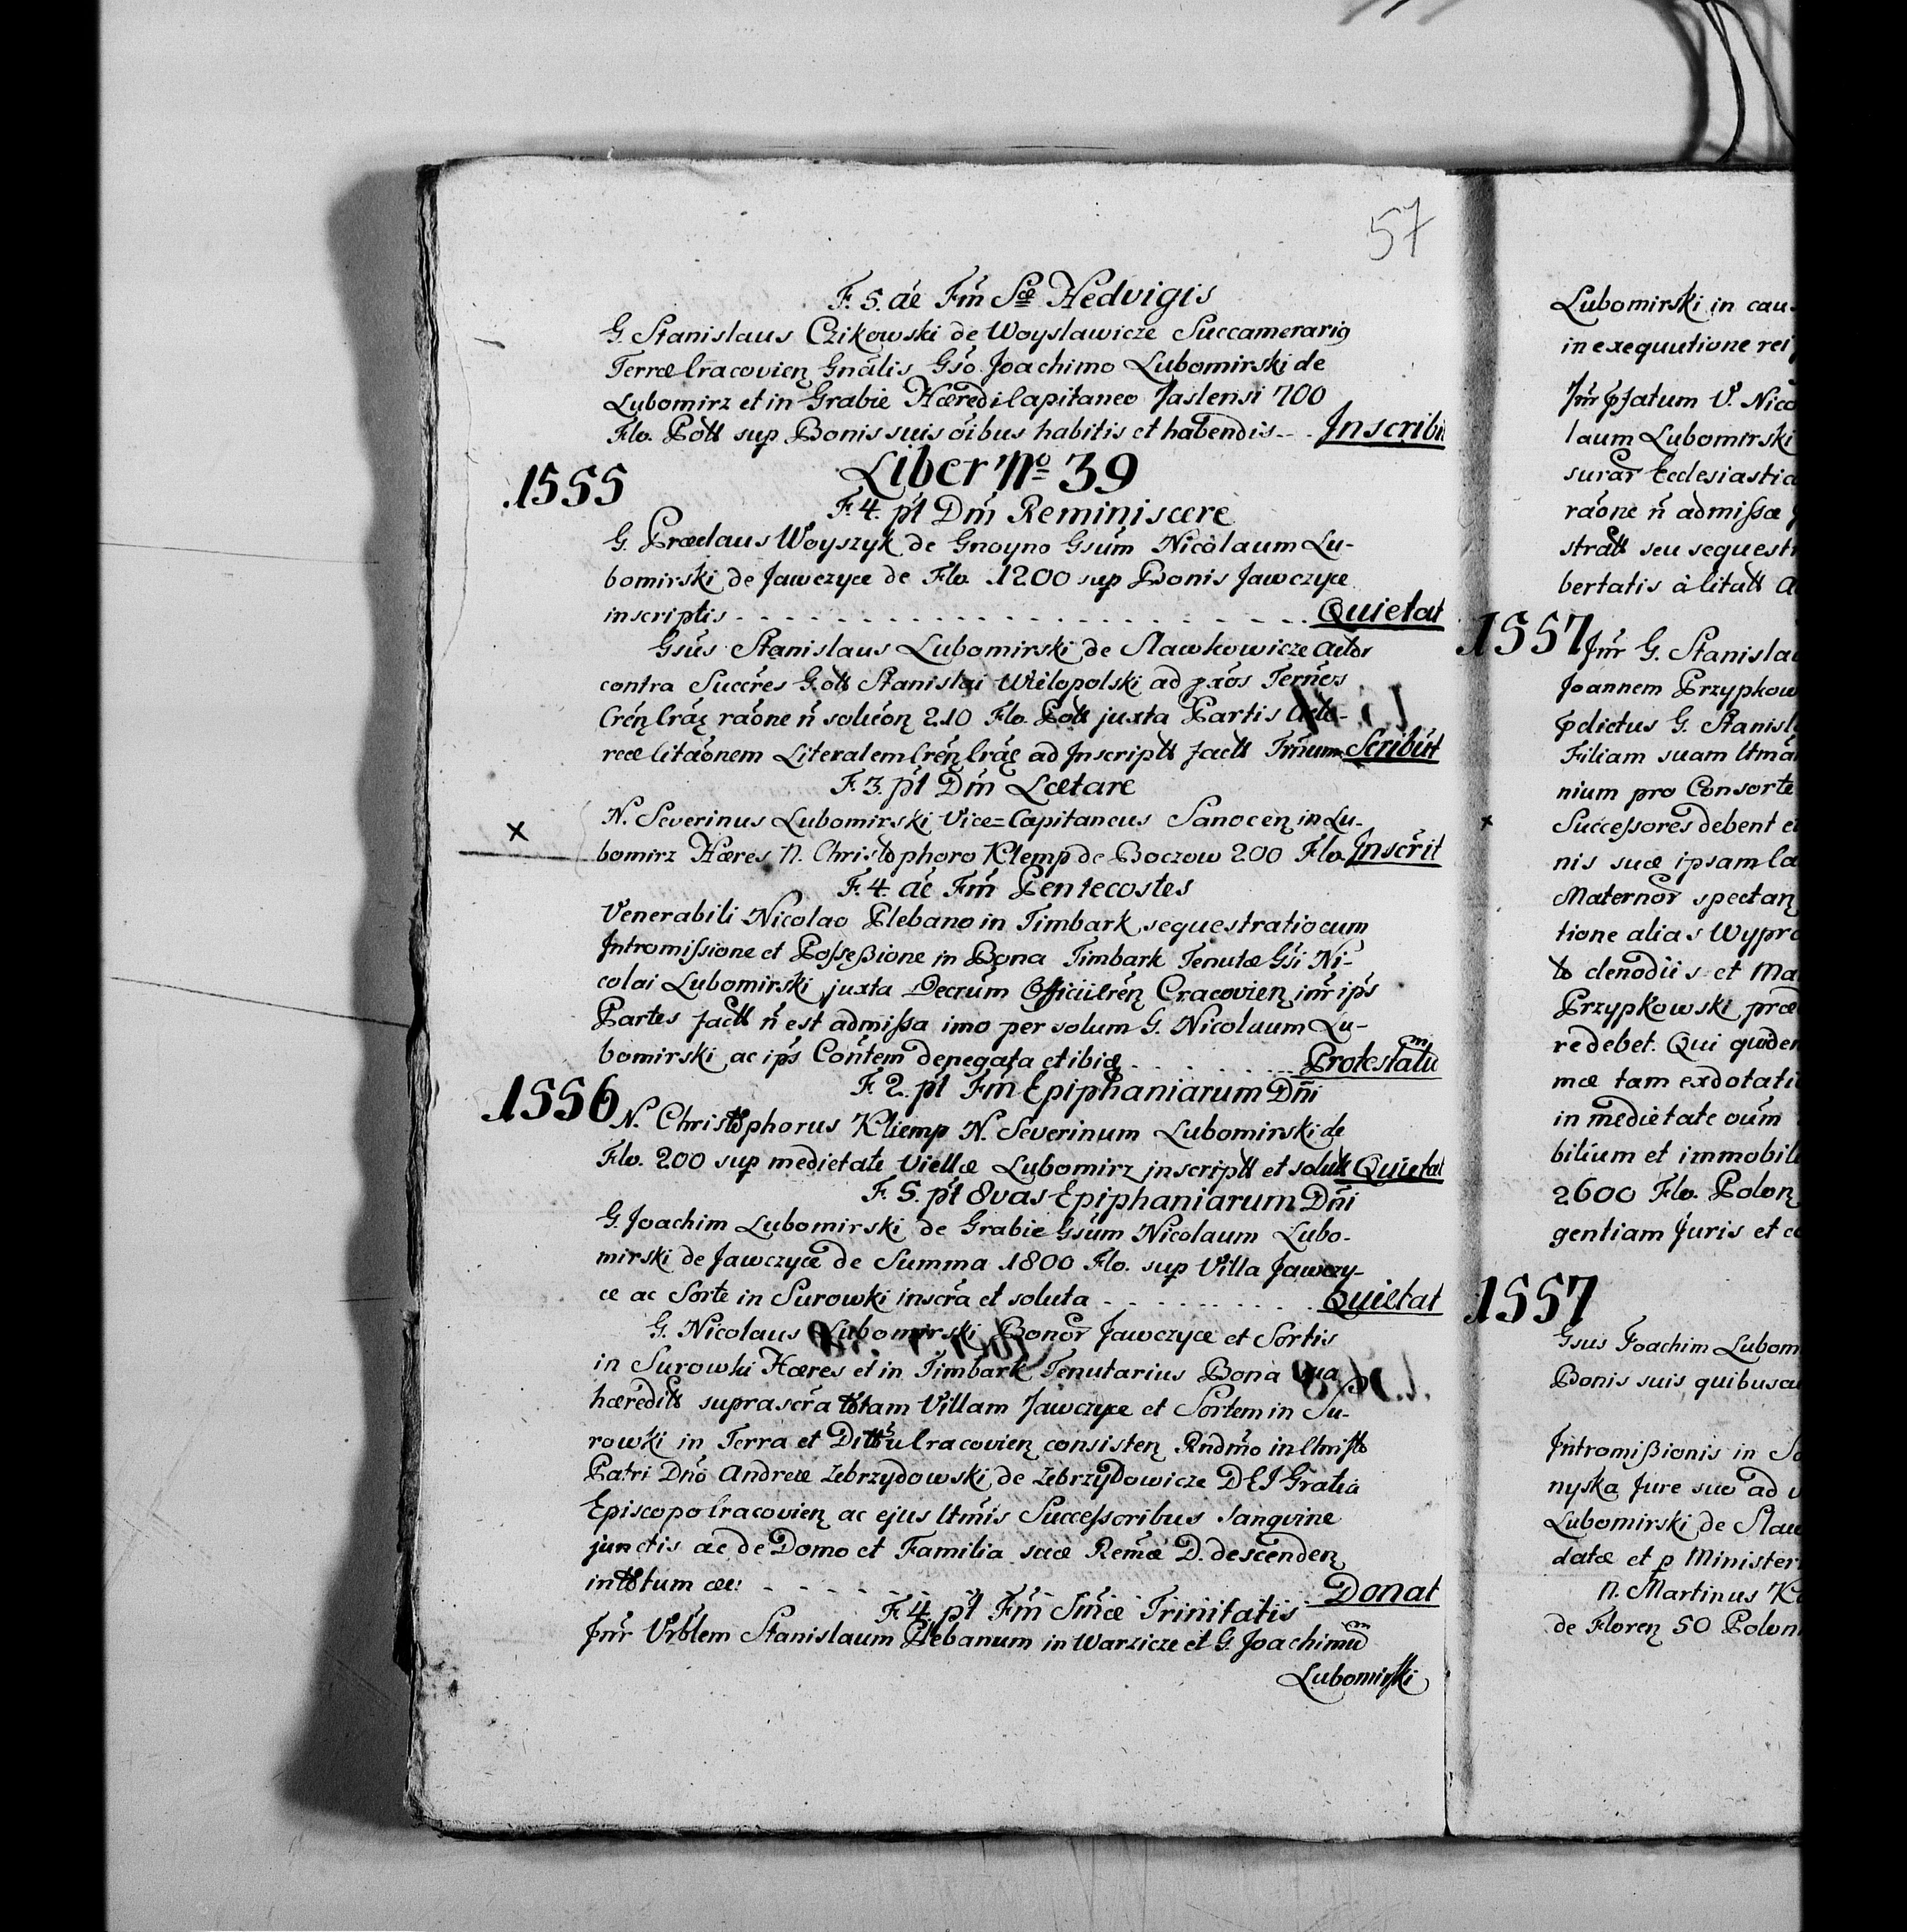 57
F. 5. ae Fm̃ Scæ Hedvigis
G. Stanislaus Czikowski de Woyslawicze Succamerarig
Terræ Cracovien Gnãlis Gso Joachimo Lubomirski de
Lubomirz et in Grabie Hæredi Capitaneo Jaslensi 700
Flo. Poll sup Bonis suis oibus habitis et habendis - - . Inscribit
1555 Liber No 39
F. 4. pt Dm̃ Reminiscere
G. Præclaus Woyszyk de Gnoyno Gsum Nicolaum Lu-
bomirski de Jawczyce de Flo. 1200 sup Bonis Jawczyce
inscriptis - - - - - - - - Quietat
Gsus Stanislaus Lubomirski de Slawkowicze Actor
contra Succres G. olt Stanislai Wielopolski ad pxos Ternos
raone ñ solucon 210 Flo. Poll juxta Partis Acto-
reæ citaonem Literalem ad Inscriptt factt Tmum Scribit
F. 3. pt Dm̃ Lætare
x N. Severinus Lubomirski Vice=Capitaneus Sanocen in Lu-
bomirz Hæres N. Christophoro Klemp de Boczow 200 Flo. Inscrit
F. 4. ae Fm̃ Pentecostes
Venerabili Nicolao Plebano in Timbark sequestratio cum
Intromissione et Possessione in Bona Timbark Tenutæ Gsi Ni-
colai Lubomirski juxta Decrum Cracovien inr ips
Partes factt ñ est admissa imo per solum G. Nicolaum Lu-
bomirski ac ips Contem denegata et ibid - - - Protestatum
1556 F. 2. pt Fm̃ Epiphaniarum Dñi
N. Christophorus Kliemp N. Severinum Lubomirski de
Flo. 200 sup medietate Viellæ Lubomirz inscriptt et solutt Quietat
F. 5. pt 8vas Epiphaniarum Dñi
G. Joachim Lubomirski de Grabie Gsum Nicolaum Lubo-
mirski de Jawczyce de Summa 1800 Flo. sup Villa Jawczy-
ce ac Sorte in Surowki inscra et soluta - - - - - Quietat
G. Nicolaus Lubomirski Bonor Jawczyce et Sortis
in Surowki Hæres et in Timbark Tenutarius Bona sua
hæreditt suprascra totam Villam Jawczyce et Sortem in Su-
rowki in Terra et Dittu Cracovien consisten Rndmo in Christo
Patri Dno Andreæ Zebrzydowski de Zebrzydowicze DEI Gratia
Episcopo Cracovien ac ejus ltmis Successoribus Sangvine
junctis ac de Domo et Familia suæ Remæ D. descenden
in totum - - - - - Donat
F. 4. pt Fm̃ Smæ Trinitatis
Inr Vrblem Stanislaum Plebanum in Warzicze et G. Joachimum
Lubomirski
Lubomirski in cau
in exequutione rei
Inr pfatum V. Nico
laum Lubomirski
surar Ecclesiastic
raone ñ admissæ
stratt seu sequestr
bertatis
1557 Inr G. Stanisla
Joannem Przypkow
pdictus G. Stanisl
Filiam suam ltma
nium pro Consorte
x Successores debent e
nis suæ ipsam
Maternor spectan
tione alias Wypr
to clenodiis et Ma
Przypkowski præ
re debet. Qui quidem
mæ tam exdotati
in medietate oum
bilium et immobil
2600 Flo. Polon
gentiam Juris et co
1557
Gsus Joachim Lubom
Bonis suis quibusc
Intromissionis in So
nyska Jure suo ad
Lubomirski de Slaw
datæ et p Minister
N. Martinus K
de Floren 50 Polon